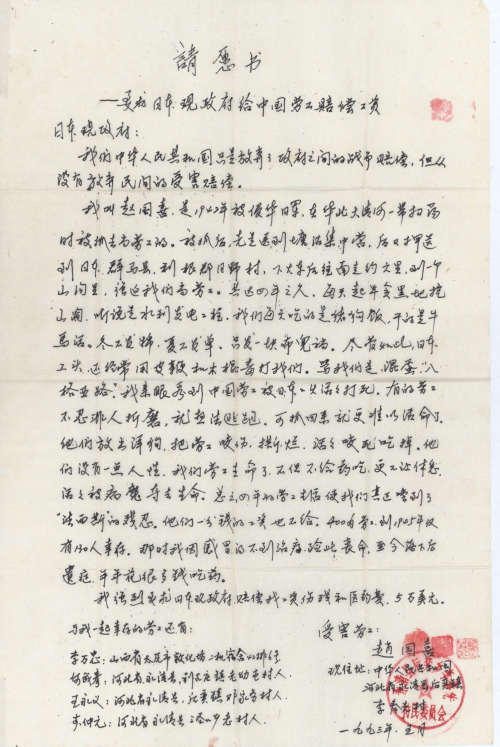 請愿书
——要求日本现政府给中国劳工赔偿工资
日本现政府：
我们中华人民共和国只是放弃了政府之间的战争赔偿，但从
没有放弃民间的受害赔偿。
我叫赵国喜，是1942年被侵华日军，在华北大清河一带扫荡
时被抓去当劳工的。被抓后先是送到塘沽集中营，后又押送
到日本群马县，利根郡日野村，下火车后往南走约六里，到一个
山沟里，强迫我们当劳工。共达四年之久，每天起早贪黑地挖
山洞，听说是水利发电工程。我们每天吃的是猪狗饭，干的是牛
马活。冬不发棉，夏不发单，只发一块布兜裆。尽管如此，日本
工头，还经常用皮鞭和木棍毒打我们。骂我们是"混蛋""八
格亚路"，我亲眼看到中国劳工被日本工头活活打死。有的劳工
不忍非人折磨，就想法逃跑。可抓回来就更难以活命了，
他们放出洋狗，把劳工咬伤、撕烂，活活咬死吃掉。他
们没有一点人性。我们劳工生病了，不但不给药吃，更不让休息，
活活被病魔夺去生命。总之四年的劳工生活使我们真正尝到了
"法西斯"的残忍。他们一分钱的工资也不给。400名劳工到1945年仅
有130人幸存。那时我因感冒得不到治疗，险些丧命，至今落下后
遗症，年年花很多钱吃药。
我强烈要求日本现政府赔偿我工资伤残和医药费，5万美元。
与我一起幸存的劳工还有：
李万忠：山西省太原市
河北省永清县
王永义：河北省永清县，后奕镇
步仲元：河北省永清县
受害劳工：
赵国喜
现住地：中华人民共和国
河北省永清县后奕镇
李奉先村
村民委员会
一九九三年五月